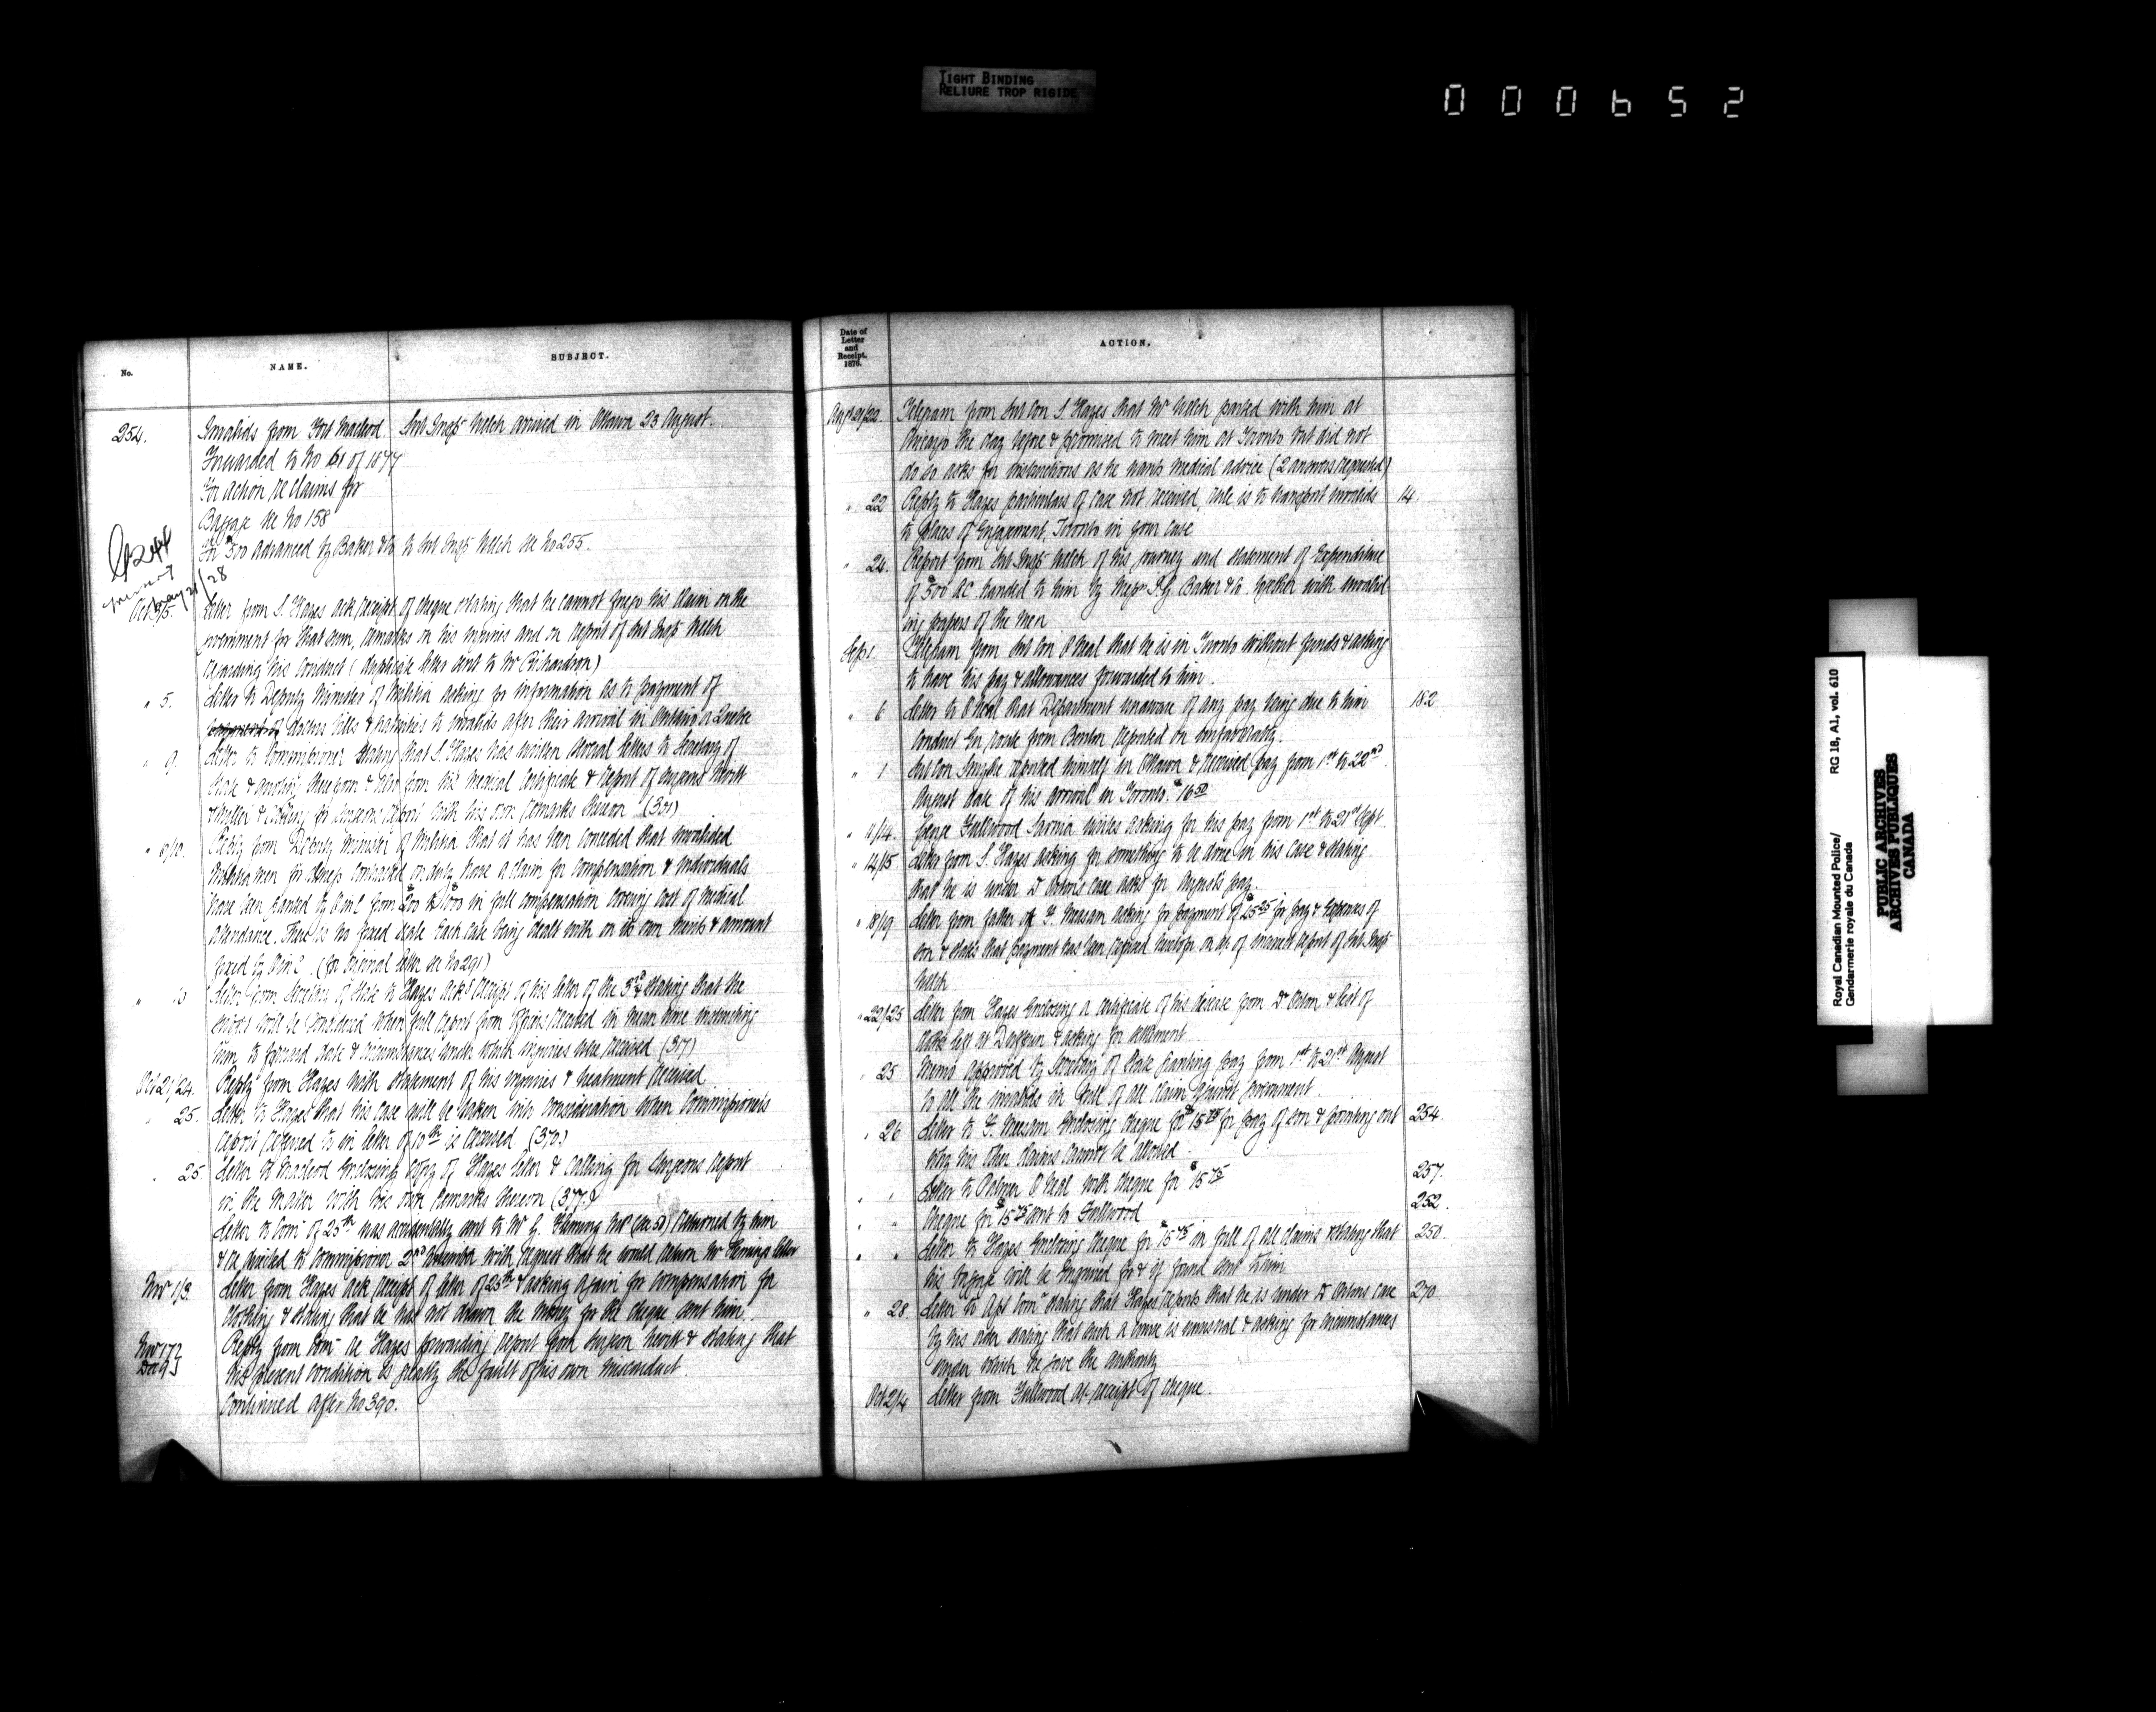 TIGHT BINDING
RELIURE TROP RIGIDE
000652
No.
NAME.
SUBJECT.
254.
Invalids from Fort Macleod
Sub Inspr Welch arrived in Ottawa 23 August.
Forwarded to No 61 of 1877
For action re claims for
Baggage see No 158
For $500 advanced by Baker & Co to Sub Inspr Welch see No 255.
Oct 3/5.
Letter from S. Hayes ack receipt of cheque stating that he cannot forego his claim on the
Government for that sum, remarks on his injuries and on report of Sub Inspr Welch
regarding his conduct (duplicate letter sent to Mr Richardson)
" 5.
Letter to Deputy Minister of Militia asking for information as to payment of
doctors bills & gratuities to invalids after their arrival in Ontario or Quebec
" 9.
Letter to Commissioner stating that S. Hayes has written several letters to Secretary of
State & and Report of Surgeons Nevitt
& Miller & asking for Surgeons report with his own remarks thereon (301)
" 9/10.
Reply from Deputy Minister of Militia that it has been conceded that invalided
Militia men for illness contracted on duty have a claim for compensation & individuals
have been granted by O in C from $200 to $300 in full compensation covering cost of medical
attendance. There is no fixed scale each case being dealt with on its own merits & amount
fixed by O in C. (for original letter see No 291)
" 10
Letter from Secretary of State to Hayes ackg receipt of his letter of the 3rd & stating that the
will be considered when full report from received in mean time instructing
him to forward date & circumstances under which injuries were received (317)
Oct 21/24.
Reply from Hayes with statement of his injuries & treatment received
" 25.
Letter to Hayes that his case will be taken into consideration when Commissioners
report referred to in letter of 10th is received (370)
" 25.
Letter to Macleod enclosing copy of Hayes letter & calling for Surgeons report
in the matter with his own remarks thereon (377)
Letter to Comr of 25th was accidentally sent to Mr G. Fleming returned by him
& re mailed to Commissioner 2nd with request that he would return Mr Flemings letter
Nov 1/3.
Letter from Hayes ack receipt of letter of 25th & asking again for compensation for
clothing & stating that he has not drawn the money for the cheque sent him.
Nov 17
Dec 9
Reply from Comr re Hayes forwarding report from Surgeon Nevitt & stating that
his present condition is greatly the fault of his own misconduct.
Continued after No 390.
Date of
Letter
and
Receipt,
1876.
ACTION.
Augt 21/22.
Telegram from Sub Con S. Hayes that Mr Welch parted with him at
Chicago the day before & promised to meet him at Toronto but did not
do so asks for instructions as he wants medical advice (2 answers requested)
" 22
Reply to Hayes particulars of case not received, rule is to transport invalids
14.
to places of Engagement, Toronto in your case
" 24.
Report from Sub Inspr Welch of his journey and statement of Expenditure
of $500 ac handed to him by Messrs I. G. Baker & Co. together with invalid-
ing papers of the men
Sep 1.
Telegram from Sub Con O'Neal that he is in Toronto without funds & asking
to have his pay & allowances forwarded to him.
" 6
Letter to O'Neal that Department unaware of any pay being due to him
182
conduct en route from Benton reported on unfavorably.
" 1
Sub Con Smythe reported himself in Ottawa & received pay from 1st to 22nd
August date of his arrival in Toronto. $16.50
" 11/14.
George Fullwood Sarnia writes asking for his pay from 1st to 21st Sept.
" 14/15.
Letter from S. Hayes asking for something to be done in his case & stating
that he is under Dr Ortons care asks for August's pay.
" 18/19
Letter from father of F. Meesam asking for payment of $25.25 for pay & expenses of
son & states that payment has been refused heretofore on ac. of incorrect report of Sub Inspr
Welch
" 22/23
Letter from Hayes enclosing a certificate of his disease from Dr Orton & list of
left at & asking for settlement
" 25
Memo approved by Secretary of State granting pay from 1st to 21st August
to all the invalids in full of all claim against Government
" 26
Letter to F. Meesam enclosing cheque for $15.75 for pay of son & pointing out
254
why his other claims cannot be allowed
" "
Letter to Palmer O'Neal with cheque for $15.75
257.
" "
Cheque for $15.75 sent to Fullwood
252.
" "
Letter to Hayes enclosing cheque for $15.75 in full of all claims & stating that
250.
his baggage will be enquired for & if found sent to him
" 28
Letter to Asst Comr stating that Hayes reports that he is under Dr Ortons care
270
by his order stating that such a course is unusual & asking for circumstances
under which he gave the authority
Oct 2/4
Letter from Fullwood ack receipt of cheque.
Royal Canadian Mounted Police/
Gendarmerie royale du Canada
RG 18, A1, vol. 610
PUBLIC ARCHIVES
ARCHIVES PUBLIQUES
CANADA